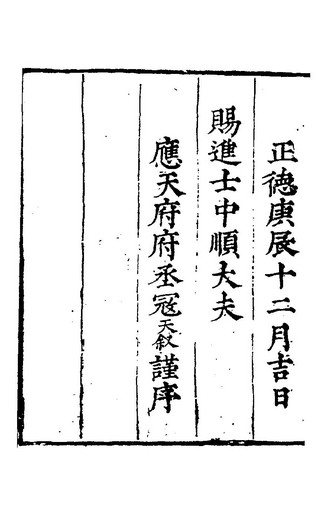 正德庚辰十二月吉日
賜進士中順大夫
應天府府丞寇天叙謹序